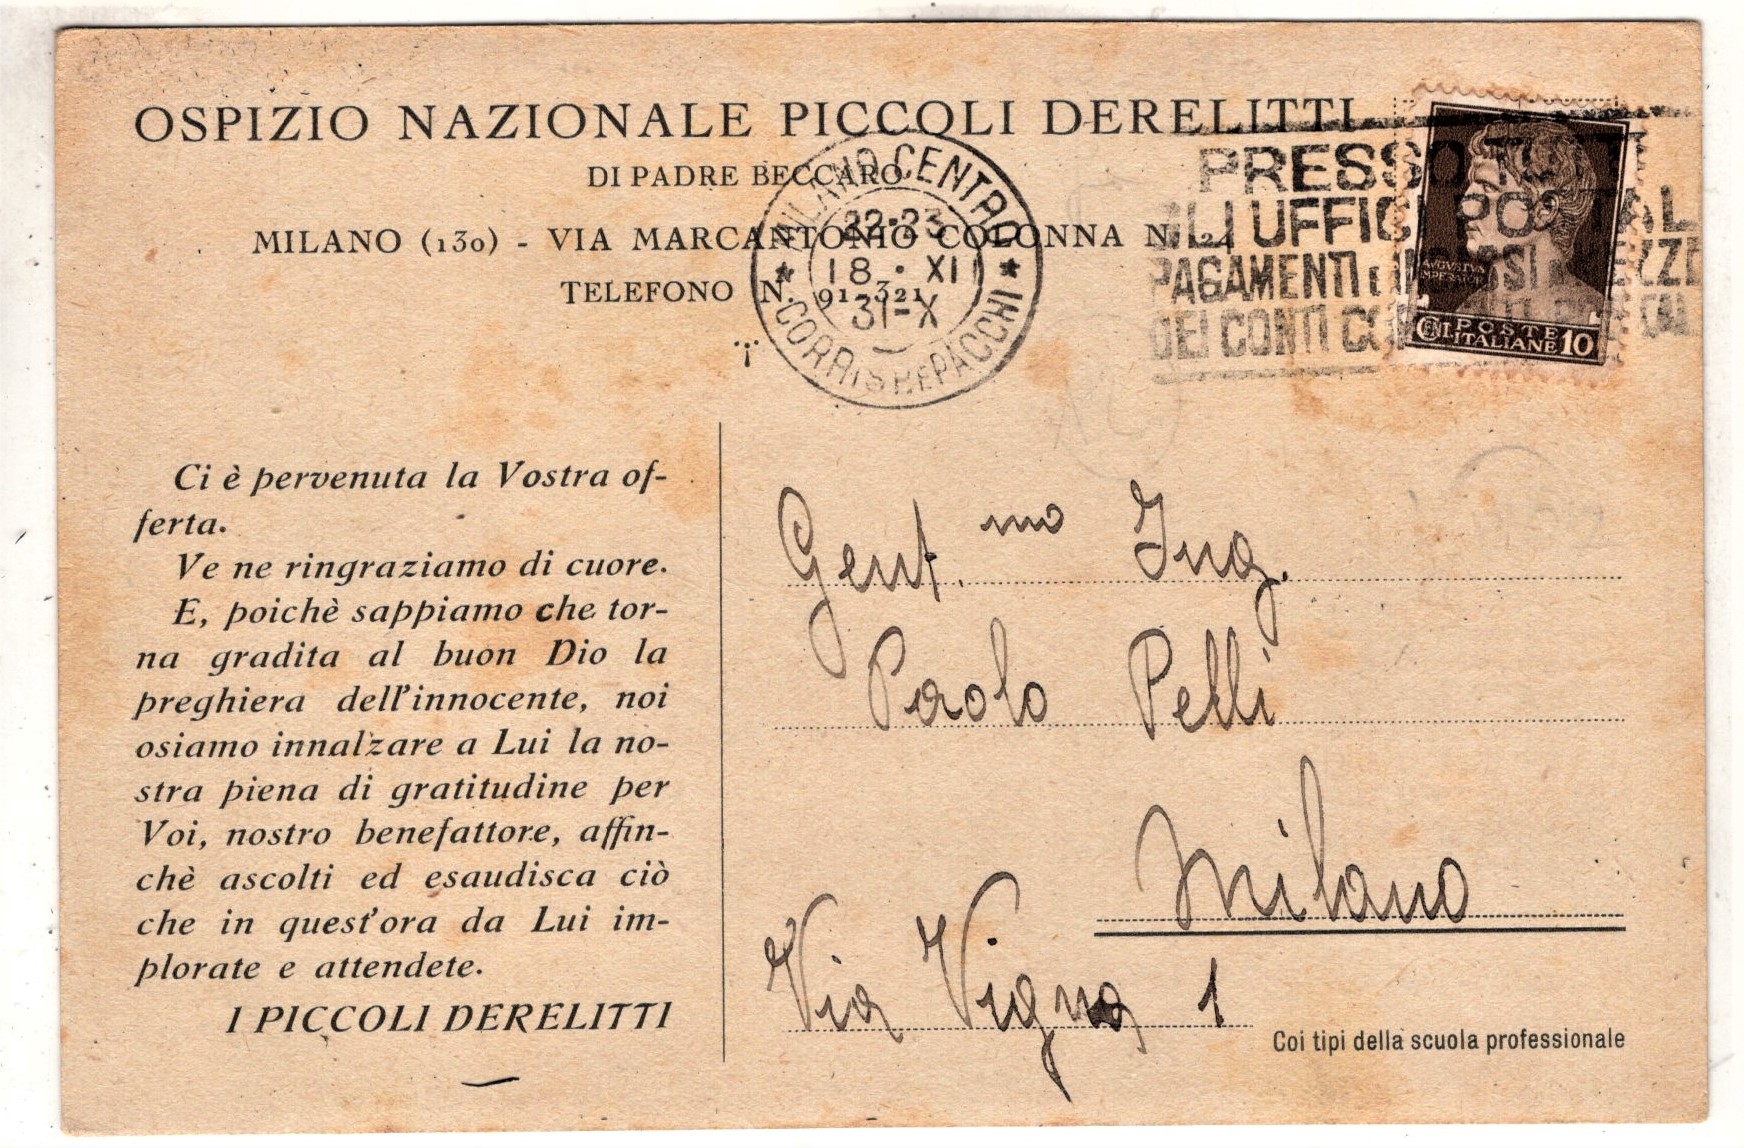 OSPIZIO NAZIONALE PICCOLI DERELITTI
DI PADRE BECCARO
MILANO (130) - VIA MARCANTONIO COLONNA N. 24
TELEFONO N. 91-321
MILANO CENTRO
22-23
18 · XI
31-X
CORRISP. E PACCHI
PRESSO TUTTI
GLI UFFICI POSTALI
PAGAMENTI
DEI CONTI
AVGVSTVS
POSTE
CENT. ITALIANE 10
Ci è pervenuta la Vostra of-
ferta.
Ve ne ringraziamo di cuore.
E, poichè sappiamo che tor-
na gradita al buon Dio la
preghiera dell'innocente, noi
osiamo innalzare a Lui la no-
stra piena di gratitudine per
Voi, nostro benefattore, affin-
chè ascolti ed esaudisca ciò
che in quest'ora da Lui im-
plorate e attendete.
I PICCOLI DERELITTI
Gent.mo Ing.
Paolo Pelli
Milano
Via Vigna 1
Coi tipi della scuola professionale